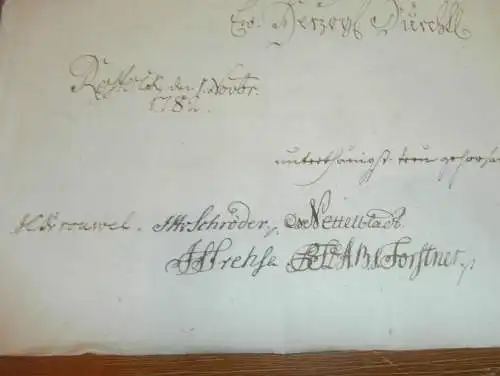 Ew. Herzogl. Dürchl.
Rostock, den 1. Novbr.
1782.
unterthänigst treu gehorsa
Krauwel. Schröder, Nettelbladt.
Prehse Forstner,